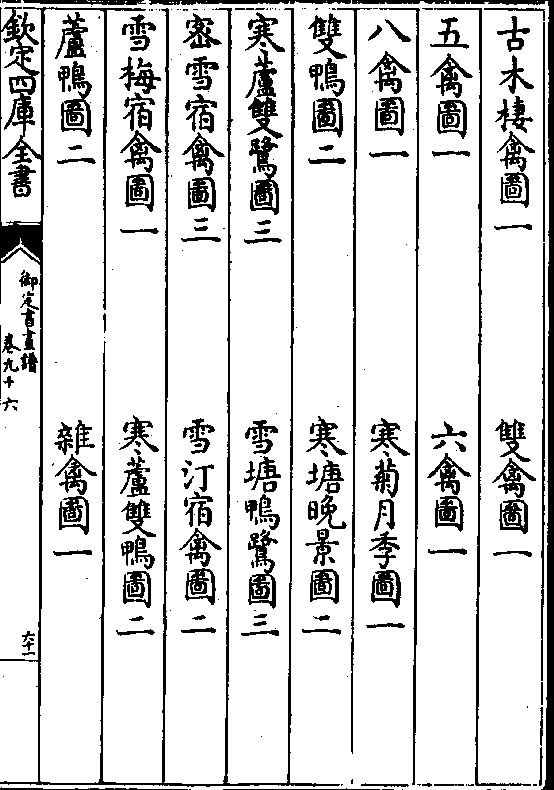 古木棲禽圖一　雙禽圖一
五禽圖一　六禽圖一
八禽圖一　寒菊月季圖一
雙鴨圖二　寒塘晚景圖二
寒蘆雙鷺圖三　雪塘鴨鷺圖三
密雪宿禽圖三　雪汀宿禽圖二
雪梅宿禽圖一　寒蘆雙鴨圖二
蘆鴨圖二　雜禽圖一
欽定四庫全書
御定書畫譜
卷九十六
六十一